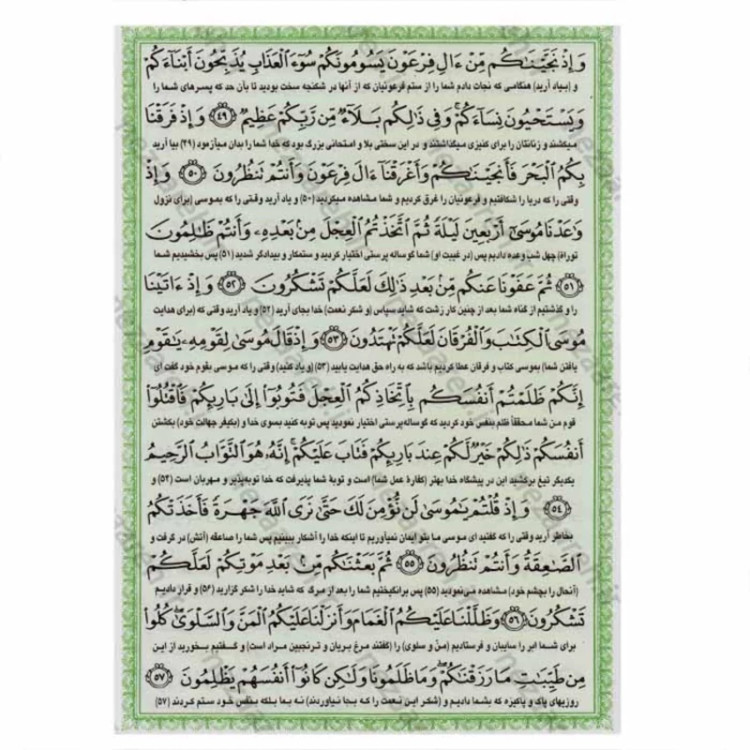 وَإِذْ نَجَّيْنَٰكُم مِّنْ ءَالِ فِرْعَوْنَ يَسُومُونَكُمْ سُوٓءَ ٱلْعَذَابِ يُذَبِّحُونَ أَبْنَآءَكُمْ
و (بیاد آرید) هنگامی که نجات دادم شما را از ستم فرعونیان که از آنها در شکنجه سخت بودید تا بآن حد که پسرهای شما را
وَيَسْتَحْيُونَ نِسَآءَكُمْ ۚ وَفِى ذَٰلِكُم بَلَآءٌ مِّن رَّبِّكُمْ عَظِيمٌ ﴿٤٩﴾ وَإِذْ فَرَقْنَا
میکشتند و زنانتان را برای کنیزی میگذاشتند و در این سختی بلا و امتحانی بزرگ بود که خدا شما را بدان میآزمود (۴۹) بیا آرید
بِكُمُ ٱلْبَحْرَ فَأَنجَيْنَٰكُمْ وَأَغْرَقْنَآ ءَالَ فِرْعَوْنَ وَأَنتُمْ تَنظُرُونَ ﴿٥٠﴾ وَإِذْ
وقتی را که دریا را شکافتیم و فرعونیان را غرق کردیم و شما مشاهده میکردید (۵۰) و یاد آرید وقتی را که بموسی (برای نزول
وَٰعَدْنَا مُوسَىٰٓ أَرْبَعِينَ لَيْلَةً ثُمَّ ٱتَّخَذْتُمُ ٱلْعِجْلَ مِنۢ بَعْدِهِۦ وَأَنتُمْ ظَٰلِمُونَ
توراة) چهل شب وعده دادیم پس (در غیبت او) شما گوساله پرستی اختیار کردید و ستمکار و بیدادگر شدید (۵۱) پس بخشیدیم شما
﴿٥١﴾ ثُمَّ عَفَوْنَا عَنكُم مِّنۢ بَعْدِ ذَٰلِكَ لَعَلَّكُمْ تَشْكُرُونَ ﴿٥٢﴾ وَإِذْ ءَاتَيْنَا
را و گذشتیم از گناه شما بعد از چنین کار زشت که شاید سپاس (و شکر نعمت) خدا بجای آرید (۵۲) و یاد آرید وقتی که (برای هدایت
مُوسَى ٱلْكِتَٰبَ وَٱلْفُرْقَانَ لَعَلَّكُمْ تَهْتَدُونَ ﴿٥٣﴾ وَإِذْ قَالَ مُوسَىٰ لِقَوْمِهِۦ يَٰقَوْمِ
یافتن شما) بموسی کتاب و فرقان عطا کردیم باشد که به راه حق هدایت یابید (۵۳) (و یاد کنید) وقتی را که موسی بقوم خود گفت ای
إِنَّكُمْ ظَلَمْتُمْ أَنفُسَكُم بِٱتِّخَاذِكُمُ ٱلْعِجْلَ فَتُوبُوٓا۟ إِلَىٰ بَارِئِكُمْ فَٱقْتُلُوٓا۟
قوم من شما محققاً ظلم بنفس خود کردید که گوساله پرستی اختیار نمودید پس توبه کنید بسوی خدا و (بکیفر جهالت خود) بکشتن
أَنفُسَكُمْ ذَٰلِكُمْ خَيْرٌ لَّكُمْ عِندَ بَارِئِكُمْ فَتَابَ عَلَيْكُمْ ۚ إِنَّهُۥ هُوَ ٱلتَّوَّابُ ٱلرَّحِيمُ
یکدیگر تیغ برکشید این در پیشگاه خدا بهتر (کفارهٔ عمل شما) است و توبهٔ شما پذیرفت که خدا توبه‌پذیر و مهربان است (۵۴) و
﴿٥٤﴾ وَإِذْ قُلْتُمْ يَٰمُوسَىٰ لَن نُّؤْمِنَ لَكَ حَتَّىٰ نَرَى ٱللَّهَ جَهْرَةً فَأَخَذَتْكُمُ
بخاطر آرید وقتی را که گفتید ای موسی ما بتو ایمان نمیآوریم تا اینکه خدا را آشکار ببینیم پس شما را صاعقه (آتش) در گرفت و
ٱلصَّٰعِقَةُ وَأَنتُمْ تَنظُرُونَ ﴿٥٥﴾ ثُمَّ بَعَثْنَٰكُم مِّنۢ بَعْدِ مَوْتِكُمْ لَعَلَّكُمْ
(آنحال را بچشم خود) مشاهده می‌نمودید (۵۵) پس برانگیختیم شما را بعد از مرگ که شاید خدا را شکر گزارید (۵۶) و قرار دادیم
تَشْكُرُونَ ﴿٥٦﴾ وَظَلَّلْنَا عَلَيْكُمُ ٱلْغَمَامَ وَأَنزَلْنَا عَلَيْكُمُ ٱلْمَنَّ وَٱلسَّلْوَىٰ ۖ كُلُوا۟
برای شما ابر را سایبان و فرستادیم (منّ و سلوی) را (گفتند مرغ بریان و ترنجبین مراد است) و گفتیم بخورید از این
مِن طَيِّبَٰتِ مَا رَزَقْنَٰكُمْ ۖ وَمَا ظَلَمُونَا وَلَٰكِن كَانُوٓا۟ أَنفُسَهُمْ يَظْلِمُونَ ﴿٥٧﴾
روزیهای پاک و پاکیزه که بشما دادیم و (شکر این نعمت را که بجا نیاوردند) نه بما بلکه بنفس خود ستم کردند (۵۷)